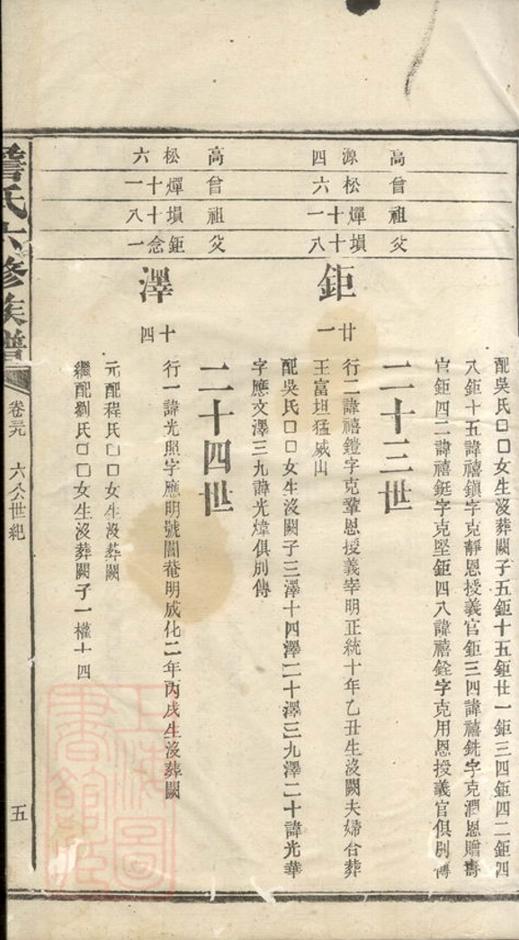 配吳氏□□女生沒闕子五鉅十五鉅廿一鉅三四鉅四二鉅四
八鉅十五諱禧鎮字克靜恩授義官鉅三四諱禧銑字克潤恩贈壽
官鉅四二諱禧鋌字克堅鉅四八諱禧銓字克用恩授義官俱別傳
二十三世
高 源四
曾 松六
祖 燀十一
父 塤十八
鉅廿一
行二諱禧鎧字克鞏恩授義宰明正統十年乙丑生沒闕夫婦合葬
王富坦猛威山
配吳氏□□女生沒闕子三澤十四澤二十澤三九澤二十諱光華
字應文澤三九諱光煒俱別傳
二十四世
高 松六
曾 燀十一
祖 塤十八
父 鉅念一
澤十四
行一諱光照字應明號誾菴明成化二年丙戌生沒葬闕
元配程氏□□女生沒葬闕
繼配劉氏□□女生沒葬闕子一權十四
詹氏六修族譜
卷元
六公世紀
五
上海圖書館